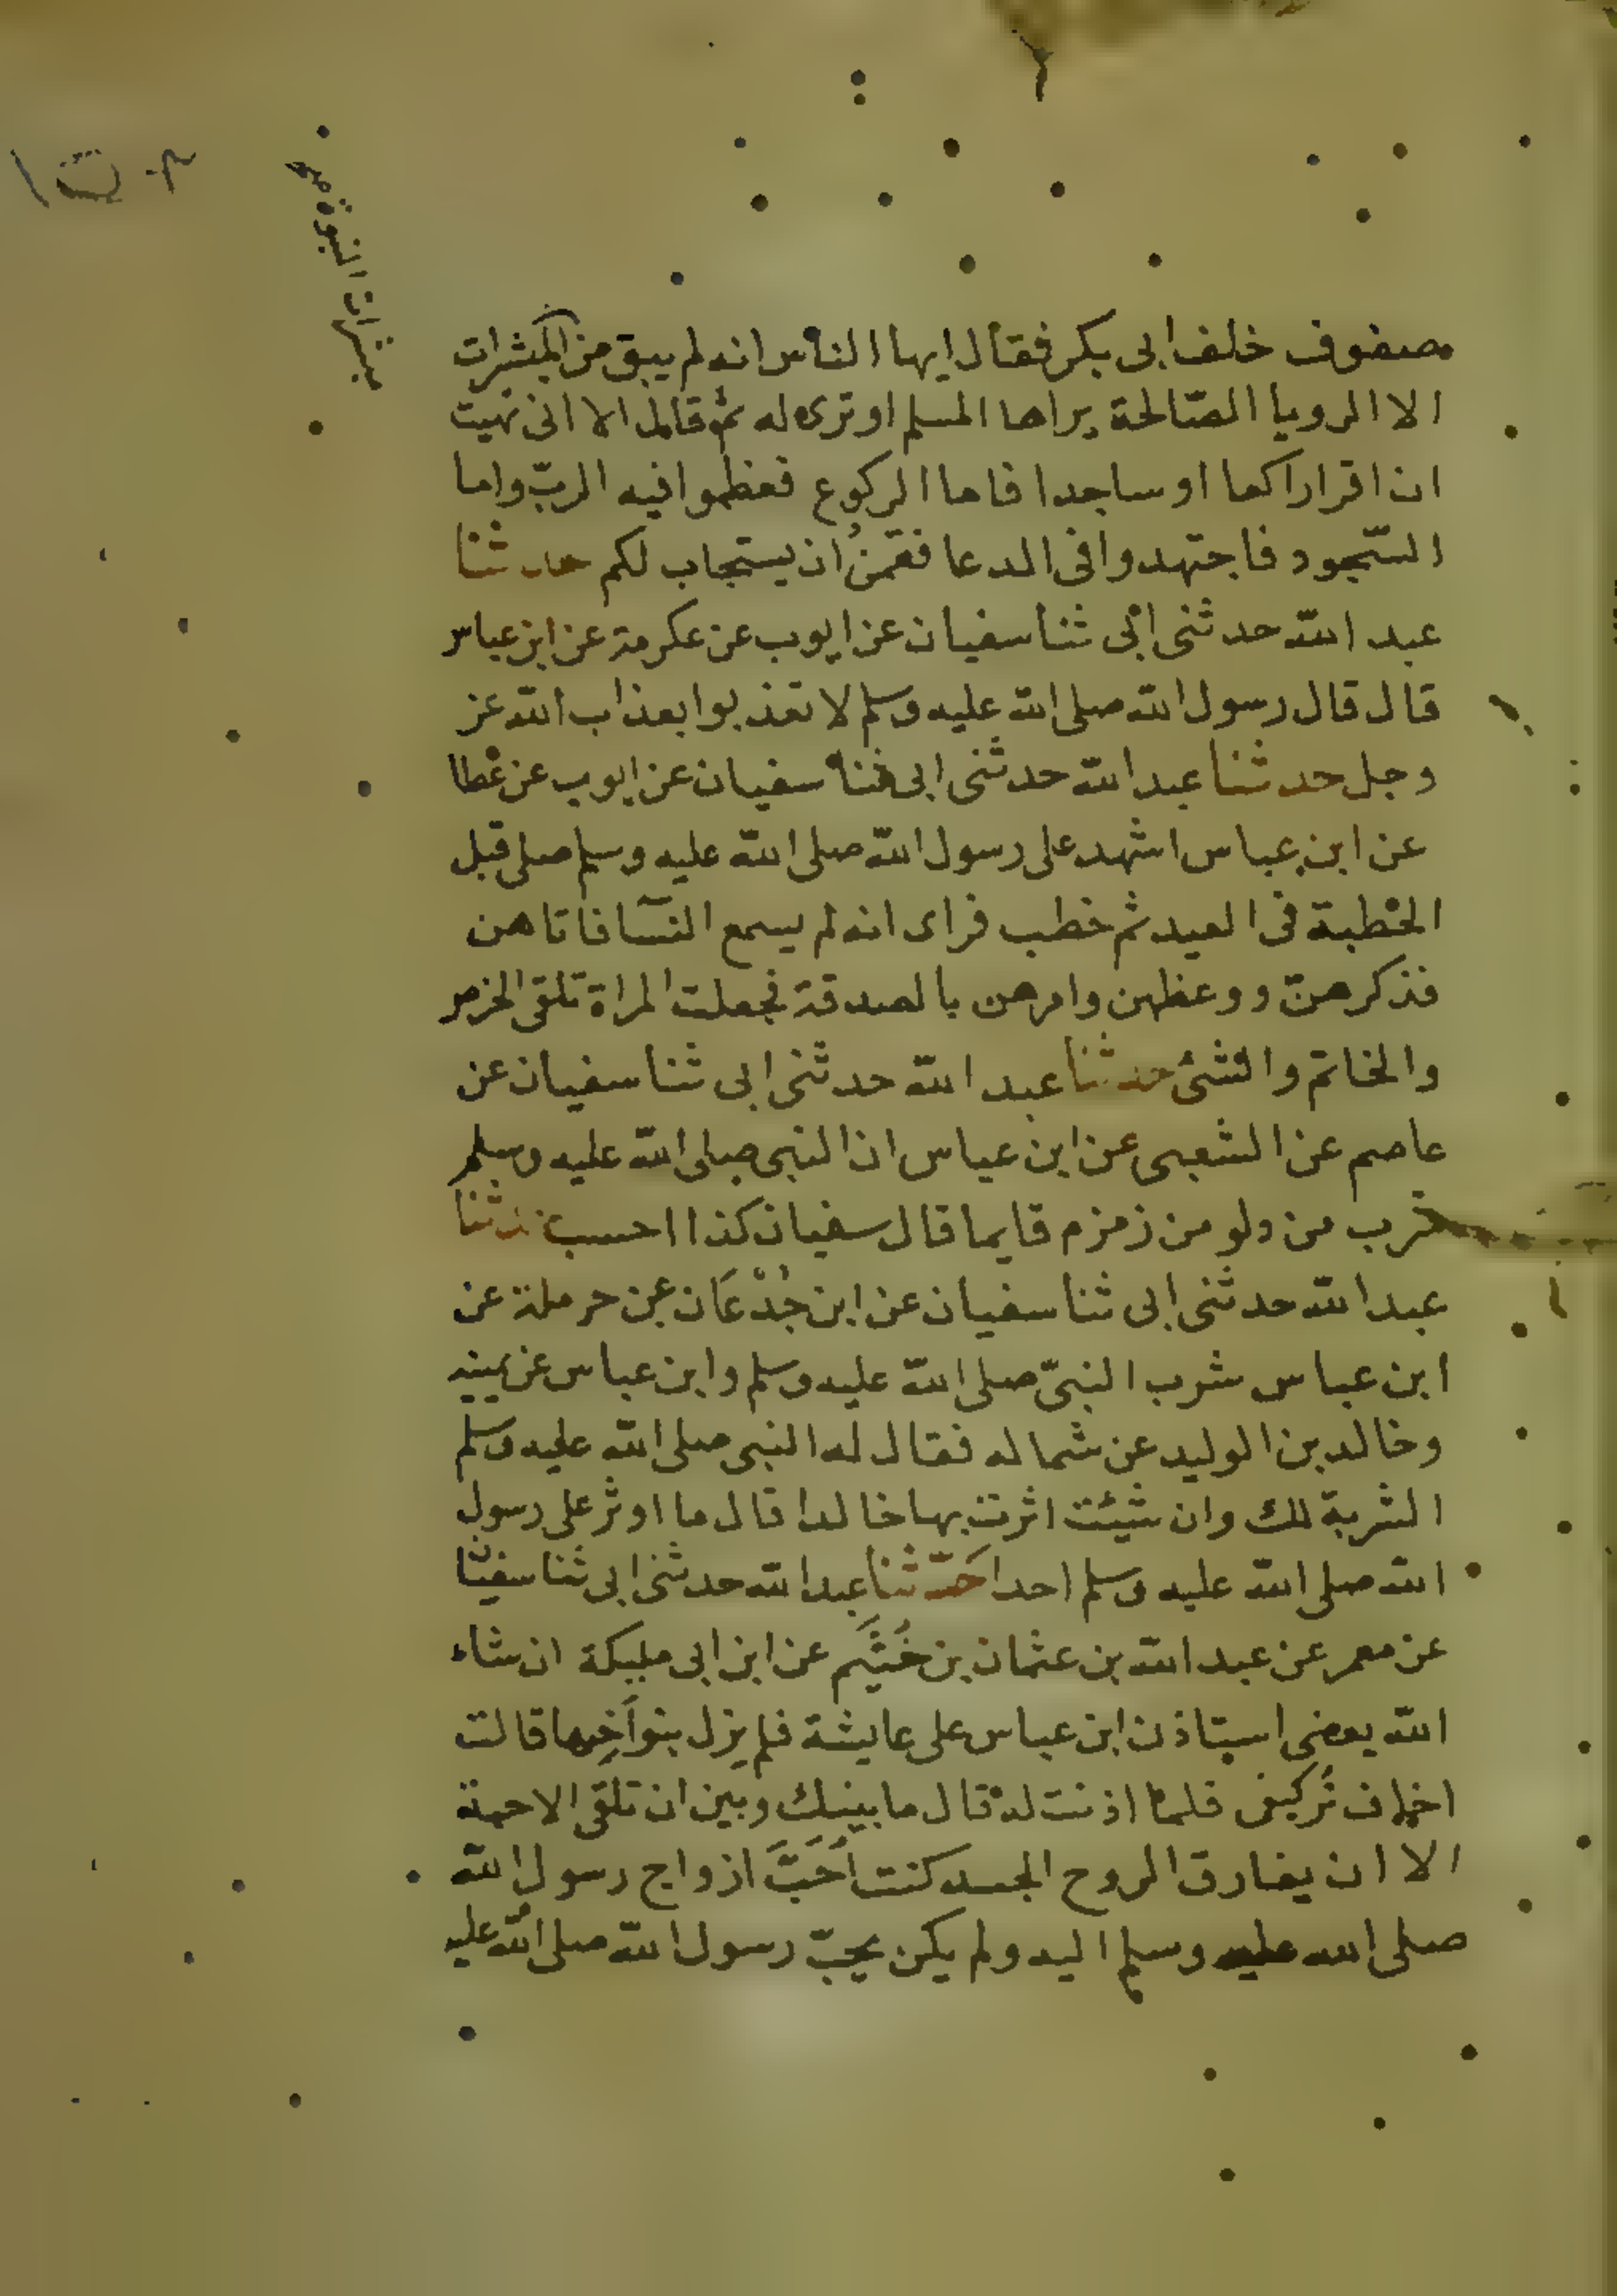 مبشرات النبوة صح
صفوف خلف ابى بكر فقال ايها الناس انه لم يبق من المبشرات
الا الرويا الصّالحة يراها المسلم او ترى له ثم قال الا انى نهيت
ان اقرا راكعا او ساجدا فاما الركوع فعظموا فيه الربّ واما
السّجود فاجتهدوا فى الدعا فقمنُ ان يستجاب لكم حدثنا
عبد الله حدثنى ابى ثنا سفيان عن ايوب عن عكرمة عن ابن عباس
قال قال رسول الله صلى الله عليه وسلم لا تعذبوا بعذاب الله عز
وجل حدثنا عبد الله حدثنى ابى ثنا سفيان عن ايوب عن عطا
عن ابن عباس اشهد على رسول الله صلى الله عليه وسلم صلى قبل
الخطبة فى العيد ثم خطب فراى انه لم يسمع النسآ فاتاهن
فذكرهنّ ووعظهن وامرهن بالصدقة فجعلت المراة تلقى الخرص
والخاتم والشئ حدثنا عبد الله حدثنى ابى ثنا سفيان عن
عاصم عن الشعبى عن ابن عباس ان النبى صلى الله عليه وسلم
شرب من دلو من زمزم قايما قال سفيان كذا احسب حدثنا
عبد الله حدثنى ابى ثنا سفيان عن ابن جُدْعَان عن حرملة عن
ابن عباس شرب النبىّ صلى الله عليه وسلم وابن عباس عن يمينه
وخالد بن الوليد عن شماله فقال له النبى صلى الله عليه وسلم
الشربة لك وان شيئت اثرت بها خالدا قال ما اوثر على رسول
الله صلى الله عليه وسلم احدا حَدّثنا عبد الله حدثنى ابى ثنا سفيان
عن معمر عن عبد الله بن عثمان بن خُثَيم عن ابن ابى مليكة ان شاء
الله يعنى استاذن ابن عباس على عايشة فلم يزل بنو اَخِيها قالت
اخاف تُزكينى فلما اذنت له قال ما بينك وبين ان تلقى الاحبة
الا ان يفارق الروح الجسد كنت اَحَبَّ ازواج رسول الله
صلى الله عليه وسلم اليه ولم يكن يحبّ رسول الله صلى الله عليه